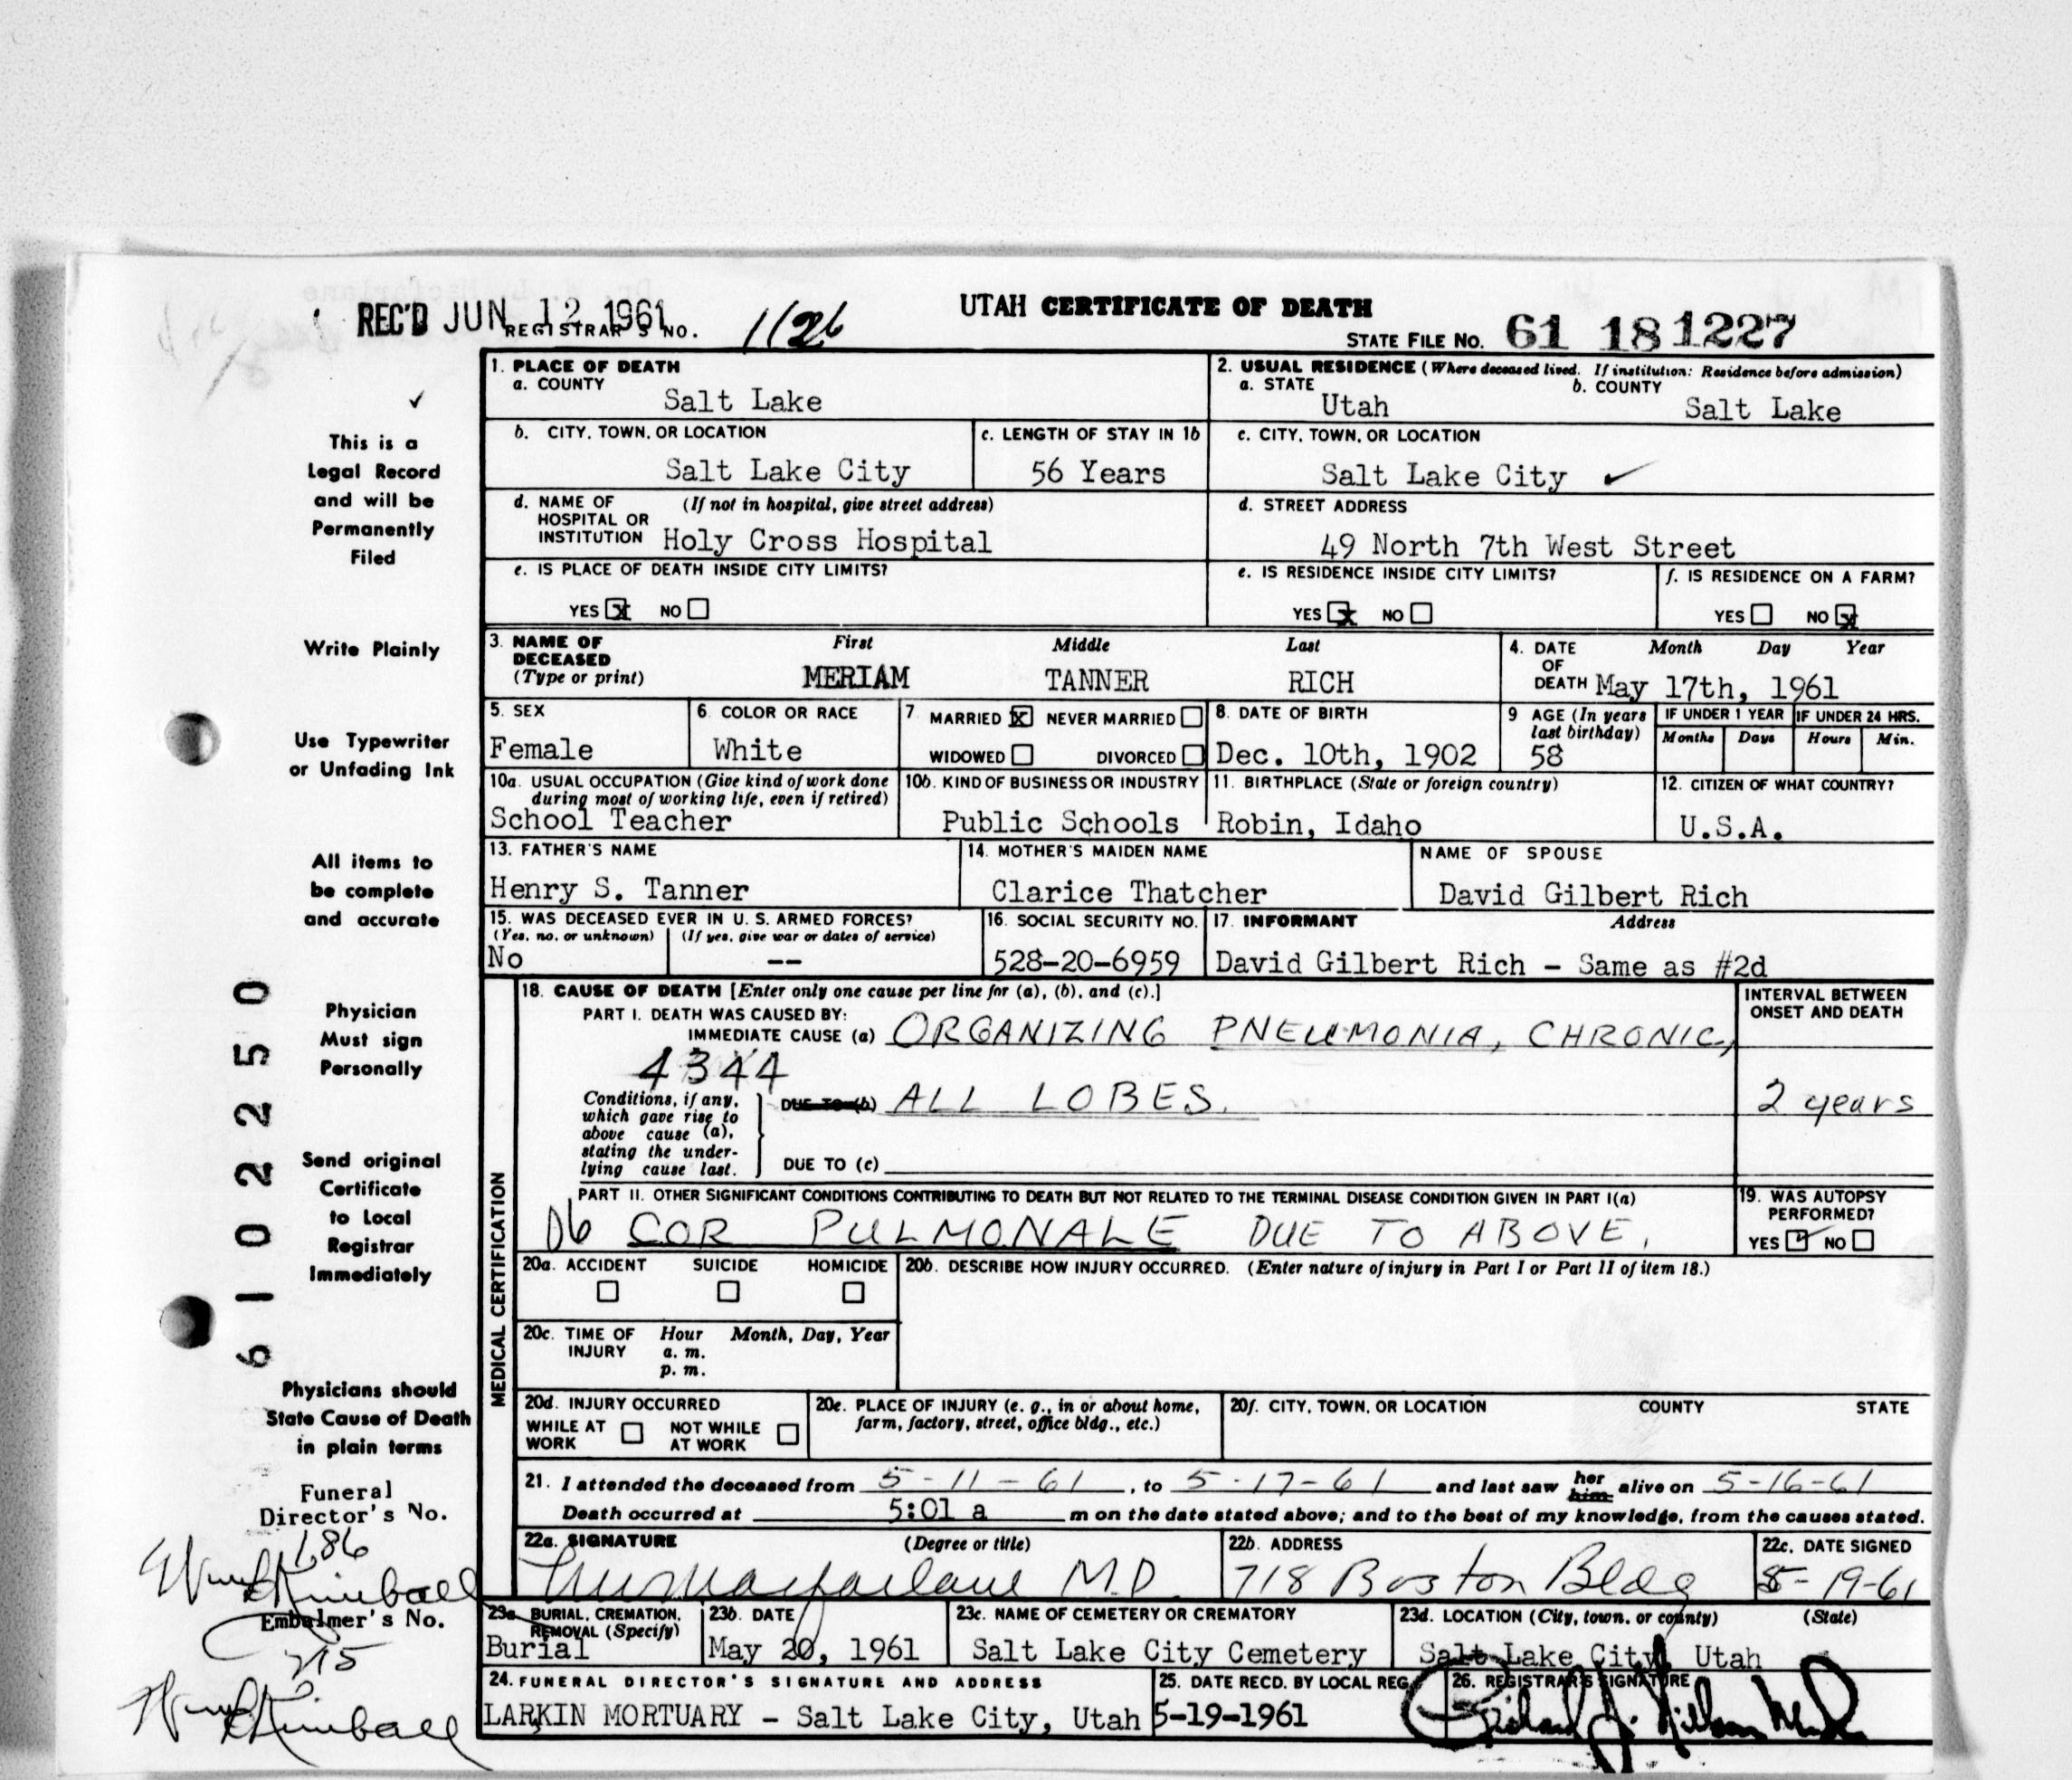 REC'D JUN 12 1961
REGISTRAR'S NO. 1126
UTAH CERTIFICATE OF DEATH
STATE FILE No. 61 18 1227
This is a
Legal Record
and will be
Permanently
Filed
Write Plainly
Use Typewriter
or Unfading Ink
All items to
be complete
and accurate
Physician
Must sign
Personally
Send original
Certificate
to Local
Registrar
Immediately
Physicians should
State Cause of Death
in plain terms
Funeral
Director's No.
186
Embalmer's No.
215
61 02250
1. PLACE OF DEATH
a. COUNTY
Salt Lake
2. USUAL RESIDENCE (Where deceased lived. If institution: Residence before admission)
a. STATE Utah b. COUNTY Salt Lake
b. CITY, TOWN, OR LOCATION
Salt Lake City
c. LENGTH OF STAY IN 1b
56 Years
c. CITY, TOWN, OR LOCATION
Salt Lake City
d. NAME OF (If not in hospital, give street address)
HOSPITAL OR
INSTITUTION Holy Cross Hospital
d. STREET ADDRESS
49 North 7th West Street
e. IS PLACE OF DEATH INSIDE CITY LIMITS?
YES x NO
e. IS RESIDENCE INSIDE CITY LIMITS?
YES x NO
f. IS RESIDENCE ON A FARM?
YES NO x
3. NAME OF DECEASED (Type or print)
First Middle Last
MERIAM TANNER RICH
4. DATE OF DEATH Month Day Year
May 17th, 1961
5. SEX
Female
6. COLOR OR RACE
White
7. MARRIED x NEVER MARRIED
WIDOWED DIVORCED
8. DATE OF BIRTH
Dec. 10th, 1902
9 AGE (In years last birthday)
58
IF UNDER 1 YEAR IF UNDER 24 HRS.
Months Days Hours Min.
10a. USUAL OCCUPATION (Give kind of work done
during most of working life, even if retired)
School Teacher
10b. KIND OF BUSINESS OR INDUSTRY
Public Schools
11. BIRTHPLACE (State or foreign country)
Robin, Idaho
12. CITIZEN OF WHAT COUNTRY?
U.S.A.
13. FATHER'S NAME
Henry S. Tanner
14. MOTHER'S MAIDEN NAME
Clarice Thatcher
NAME OF SPOUSE
David Gilbert Rich
15. WAS DECEASED EVER IN U. S. ARMED FORCES?
(Yes, no, or unknown) (If yes, give war or dates of service)
No --
16. SOCIAL SECURITY NO.
528-20-6959
17. INFORMANT Address
David Gilbert Rich - Same as #2d
MEDICAL CERTIFICATION
18. CAUSE OF DEATH [Enter only one cause per line for (a), (b), and (c).]
INTERVAL BETWEEN
ONSET AND DEATH
PART I. DEATH WAS CAUSED BY:
IMMEDIATE CAUSE (a) ORGANIZING PNEUMONIA, CHRONIC,
4344
Conditions, if any,
which gave rise to
above cause (a),
stating the under-
lying cause last.
DUE TO (b) ALL LOBES. 2 years
DUE TO (c)
PART II. OTHER SIGNIFICANT CONDITIONS CONTRIBUTING TO DEATH BUT NOT RELATED TO THE TERMINAL DISEASE CONDITION GIVEN IN PART I(a)
COR PULMONALE DUE TO ABOVE.
19. WAS AUTOPSY
PERFORMED?
YES ✓ NO
20a. ACCIDENT SUICIDE HOMICIDE
20b. DESCRIBE HOW INJURY OCCURRED. (Enter nature of injury in Part I or Part II of item 18.)
20c. TIME OF INJURY Hour Month, Day, Year
a. m.
p. m.
20d. INJURY OCCURRED
WHILE AT WORK NOT WHILE AT WORK
20e. PLACE OF INJURY (e. g., in or about home,
farm, factory, street, office bldg., etc.)
20f. CITY, TOWN, OR LOCATION COUNTY STATE
21. I attended the deceased from 5-11-61, to 5-17-61 and last saw her him alive on 5-16-61
Death occurred at 5:01 a m on the date stated above; and to the best of my knowledge, from the causes stated.
22a. SIGNATURE (Degree or title)
Macfarlane M.D.
22b. ADDRESS
718 Boston Bldg
22c. DATE SIGNED
5-19-61
23a. BURIAL, CREMATION,
REMOVAL (Specify)
Burial
23b. DATE
May 20, 1961
23c. NAME OF CEMETERY OR CREMATORY
Salt Lake City Cemetery
23d. LOCATION (City, town, or county) (State)
Salt Lake City, Utah
24. FUNERAL DIRECTOR'S SIGNATURE AND ADDRESS
LARKIN MORTUARY - Salt Lake City, Utah
25. DATE RECD. BY LOCAL REG.
5-19-1961
26. REGISTRAR'S SIGNATURE